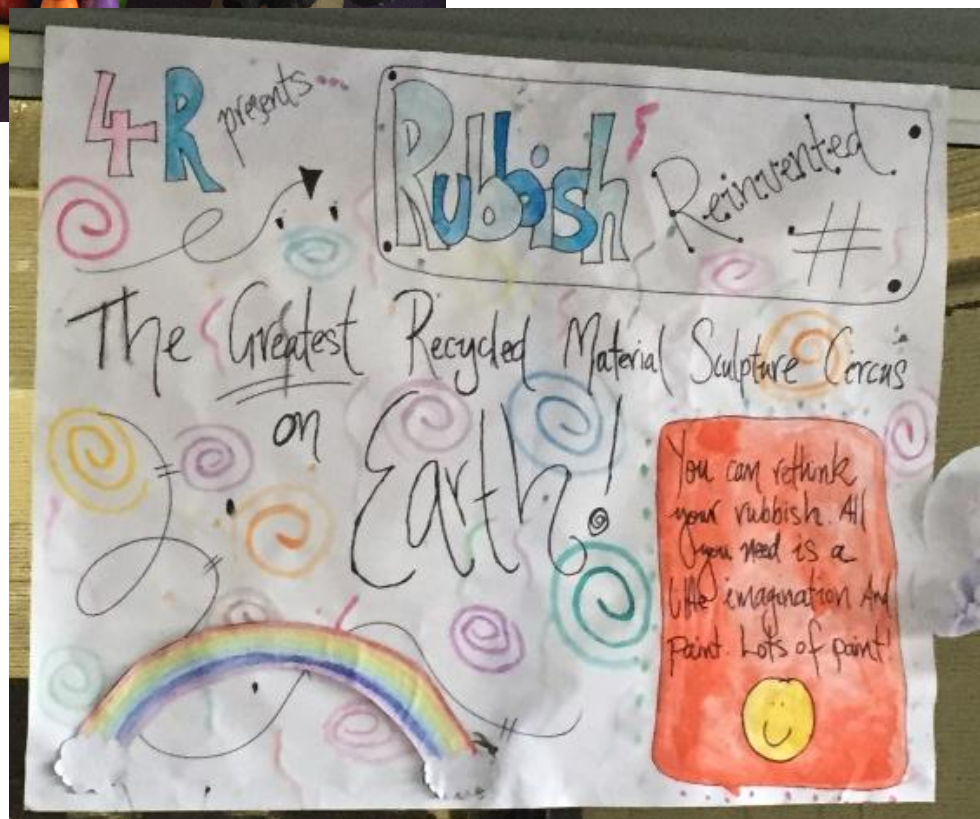 4R presents...
Rubbish Reinvented
#
The Greatest Recycled Material Sculpture Circus
on
Earth!
You can rethink
your rubbish. All
you need is a
little imagination And
paint. Lots of paint!